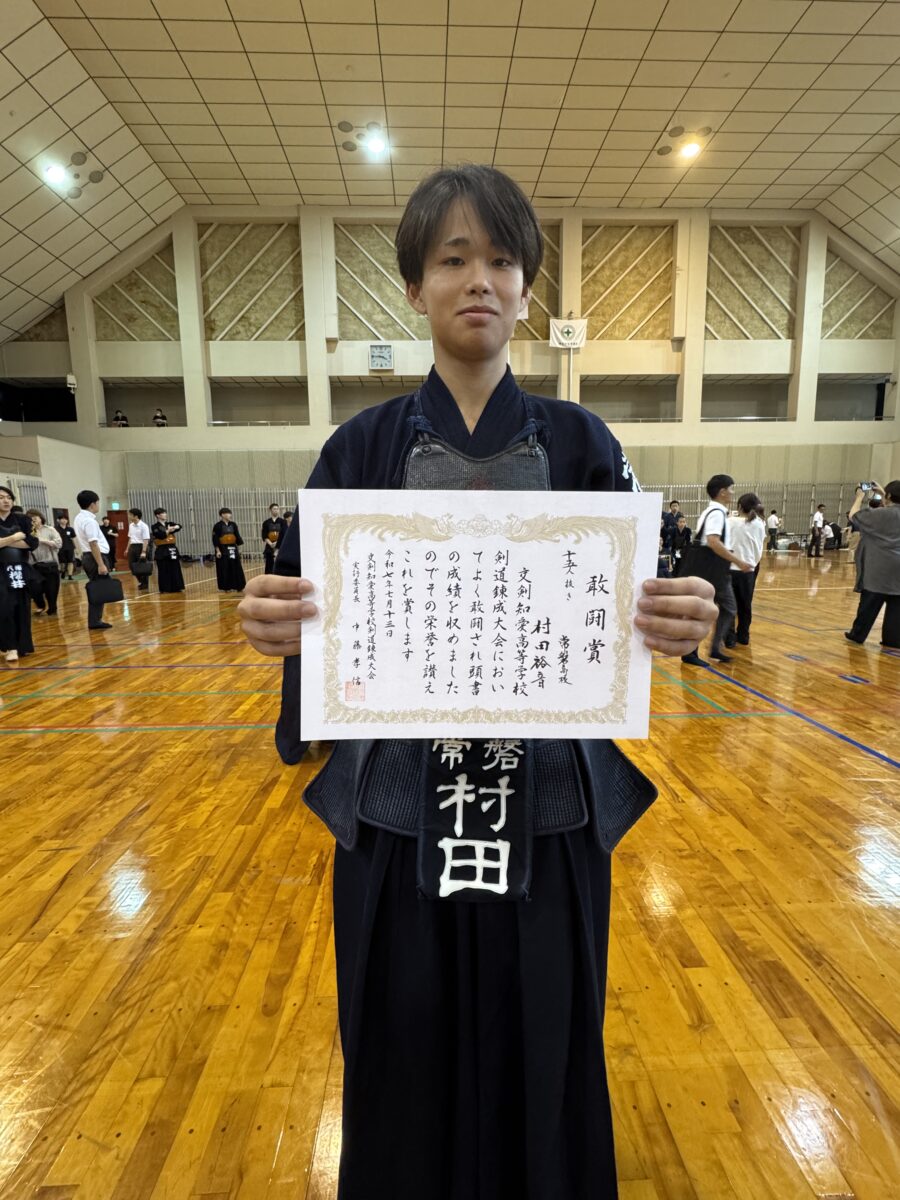 敢闘賞
十五人抜き
常磐高校
村田裕音
文剣知愛高等学校
剣道錬成大会におい
てよく敢闘され頭書
の成績を収めました
のでその栄誉を讃え
これを賞します
令和七年七月十三日
文剣知愛高等学校剣道錬成大会
実行委員長
常磐
村田